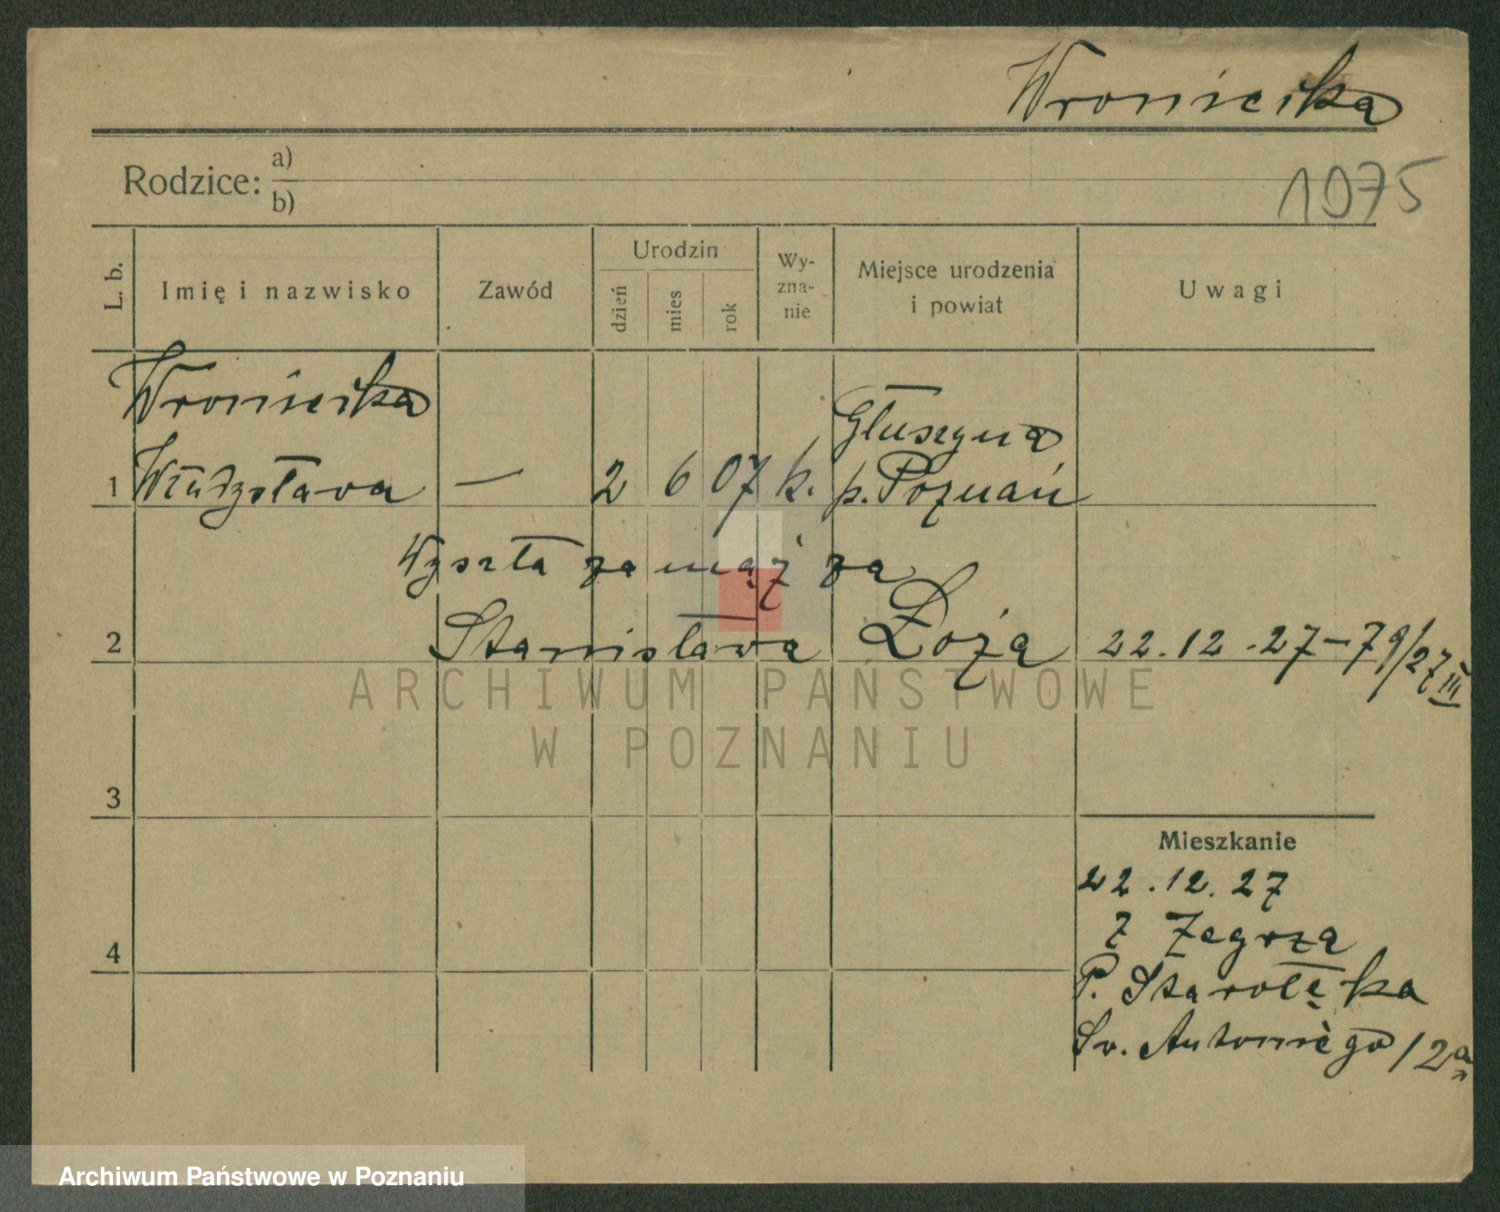 Wroniecka
Rodzice: a)
b)
1975
L. b.
Imię i nazwisko
Zawód
Urodzin
dzień
mies
rok
Wy-
zna-
nie
Miejsce urodzenia
i powiat
Uwagi
Wroniecka
Głuszyna
1 Władysława — 2 6 07 k. p. Poznań
Wyszła za mąż za
2 Stanisława Łożą 22.12.27 – 79/27 III
ARCHIWUM PAŃSTWOWE
W POZNANIU
3
Mieszkanie
22.12.27
z Zegrza
4
P. Starołęka
Św. Antoniego 12a
Archiwum Państwowe w Poznaniu